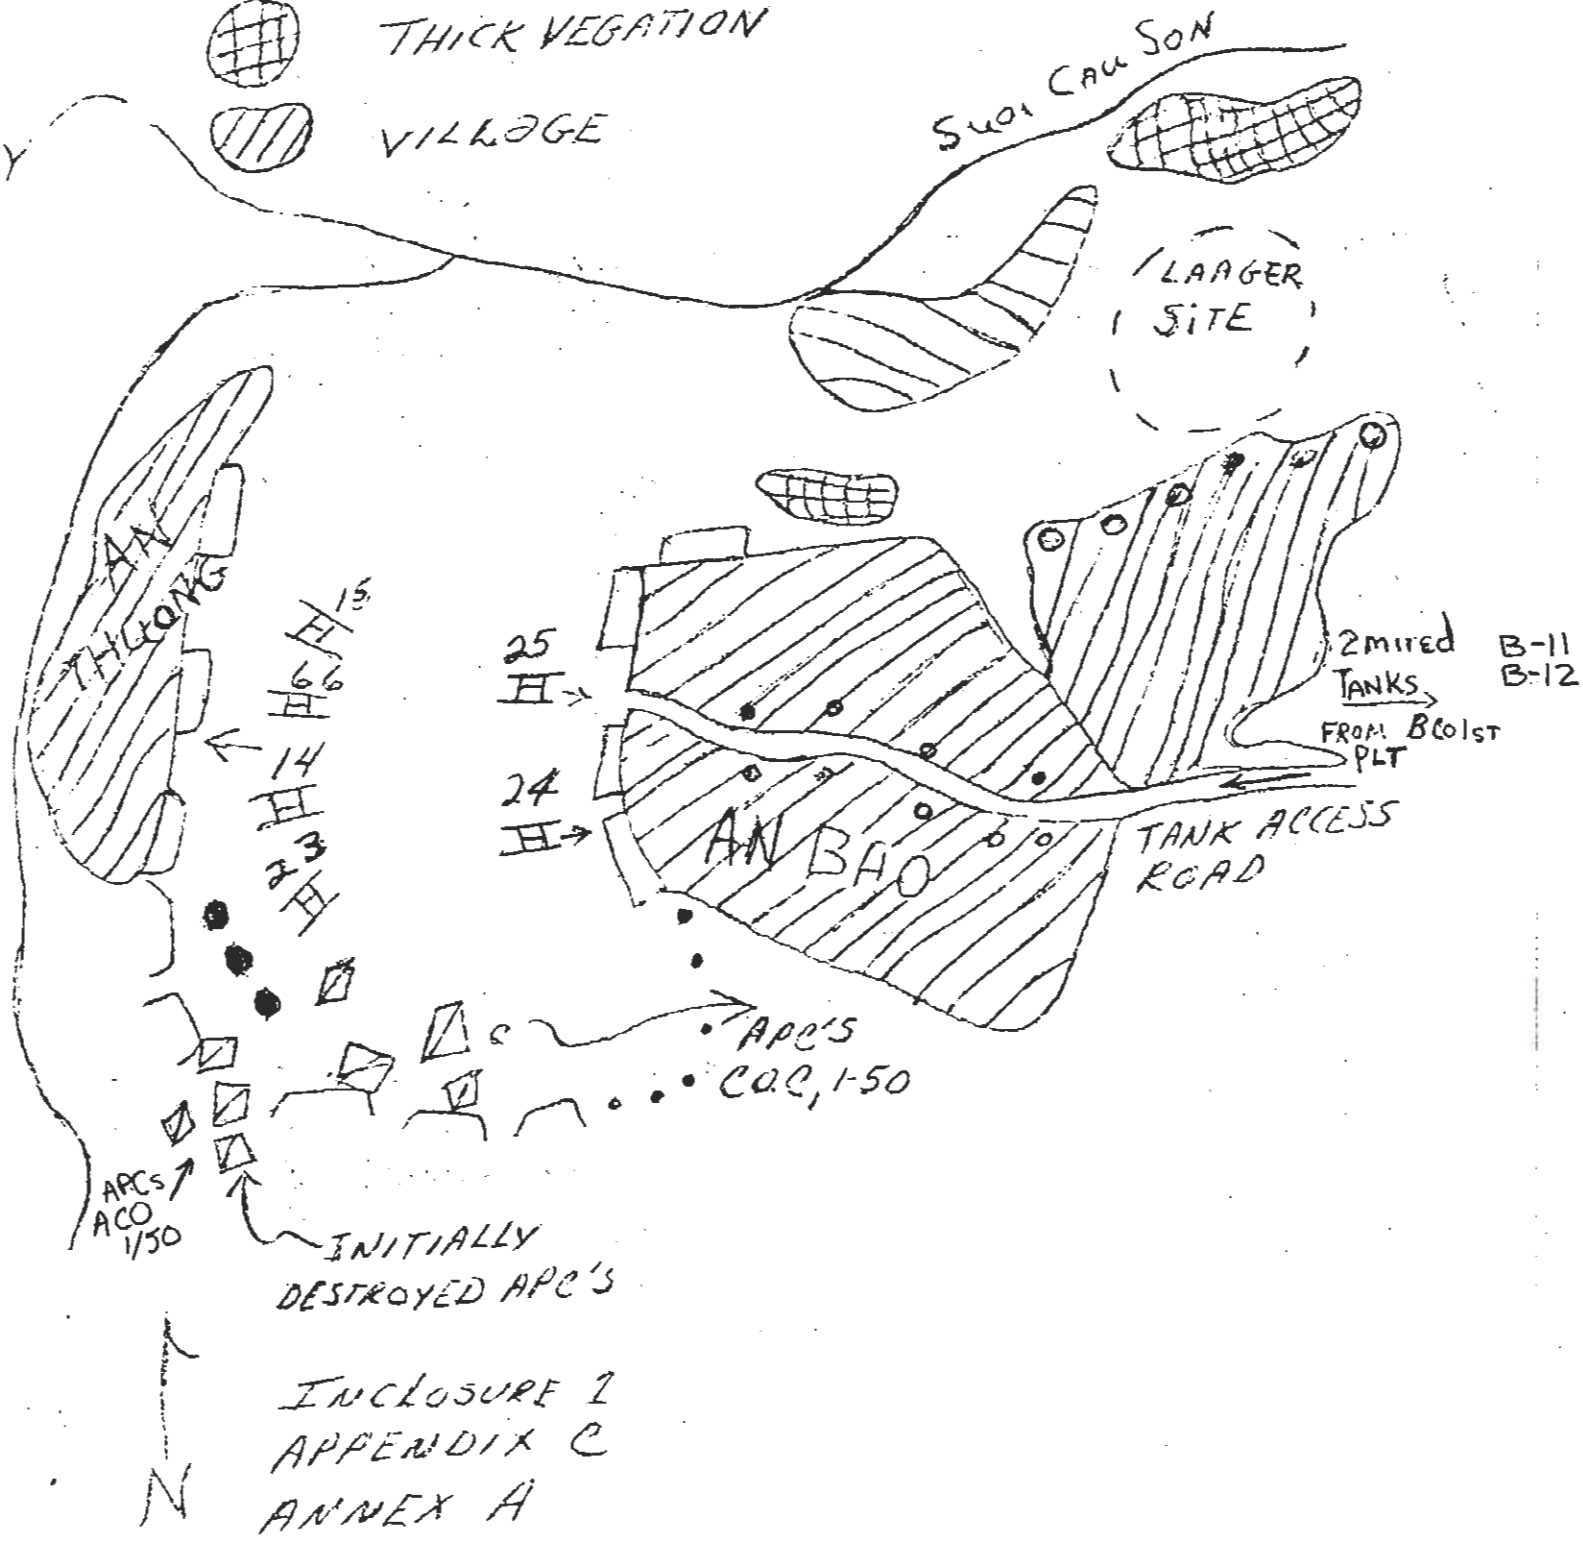 THICK VEGATION
VILLAGE
SUOI CAU SON
LAAGER
SITE
AN
THUONG
15
66
14
23
25
24
2 mired
TANKS
FROM B CO 1ST
PLT
B-11
B-12
AN BAO
TANK ACCESS
ROAD
APC'S
CO.C, 1-50
APCs
A CO
1/50
INITIALLY
DESTROYED APC'S
INCLOSURE 1
APPENDIX C
ANNEX A
N